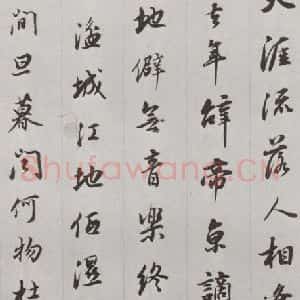 天涯流落人相逢
去年辭帝京謫
地僻無音樂終
湓城江地低濕
間旦暮聞何物杜
Shufawang.CN